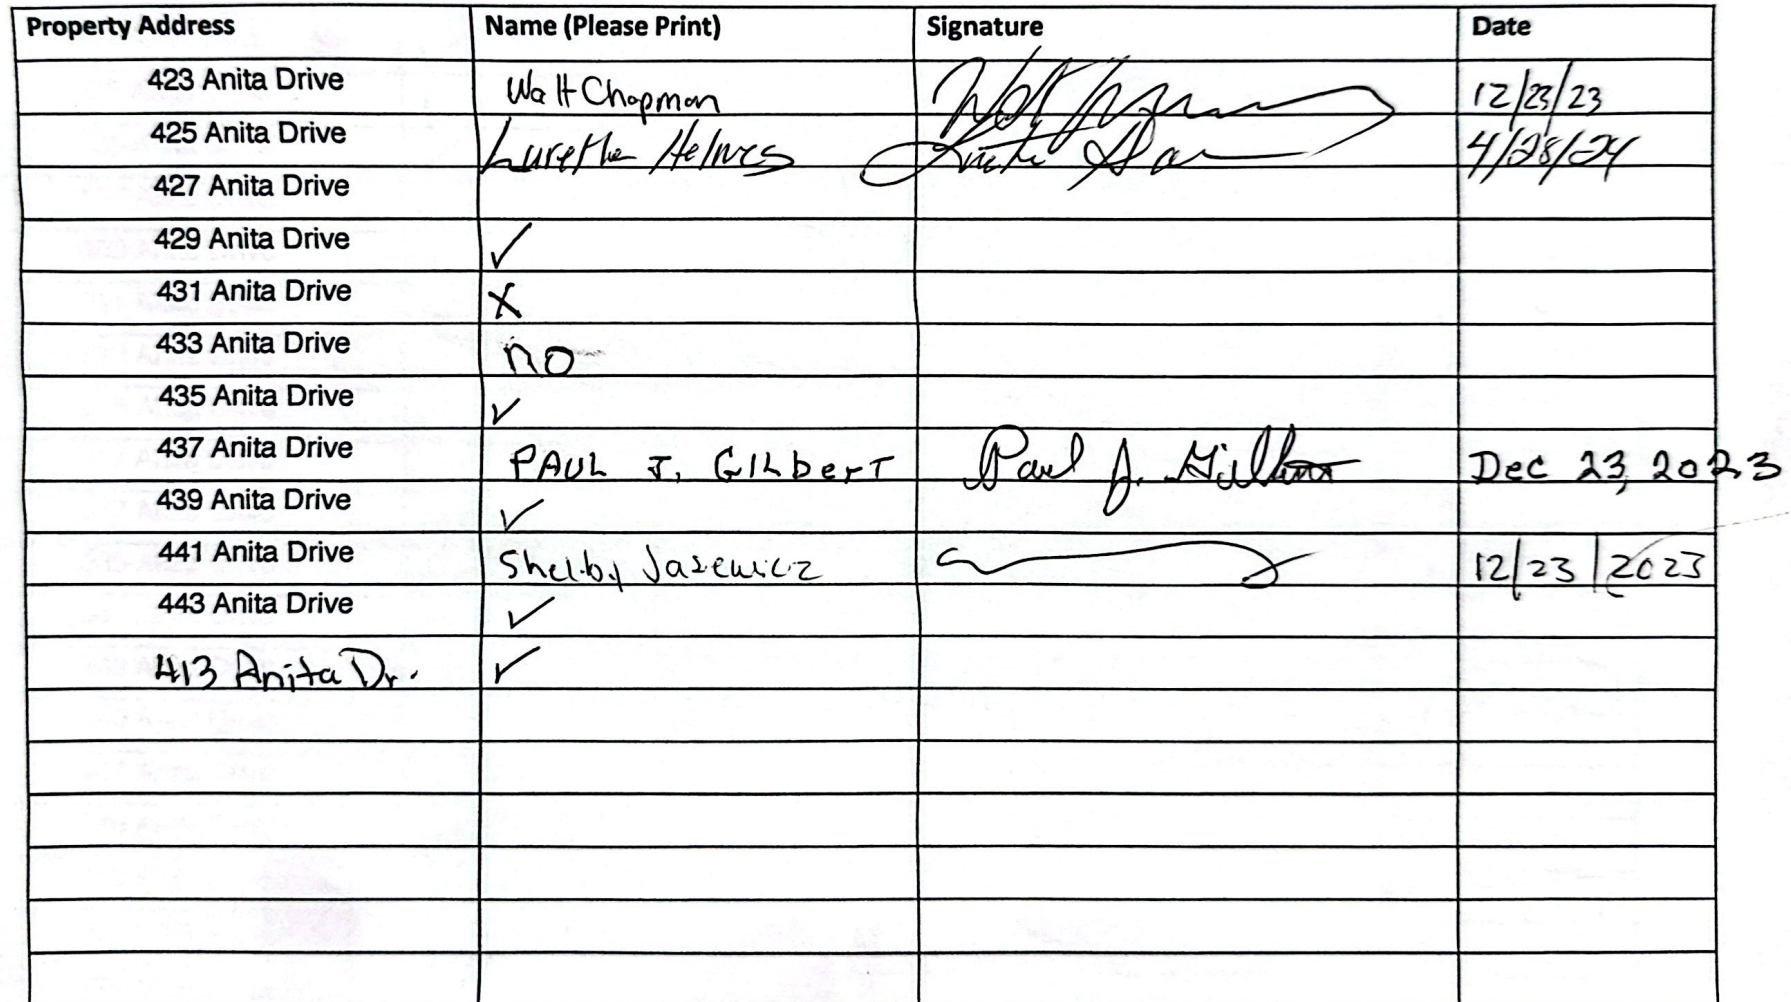 Property Address Name (Please Print) Signature Date
423 Anita Drive Walt Chapman 12/23/23
425 Anita Drive 4/28/24
427 Anita Drive
429 Anita Drive ✓
431 Anita Drive X
433 Anita Drive no
435 Anita Drive ✓
437 Anita Drive PAUL J. GILbERT Paul J. Gilbert Dec 23, 2023
439 Anita Drive ✓
441 Anita Drive Shelby Jasewicz 12/23/2023
443 Anita Drive ✓
413 Anita Dr. ✓